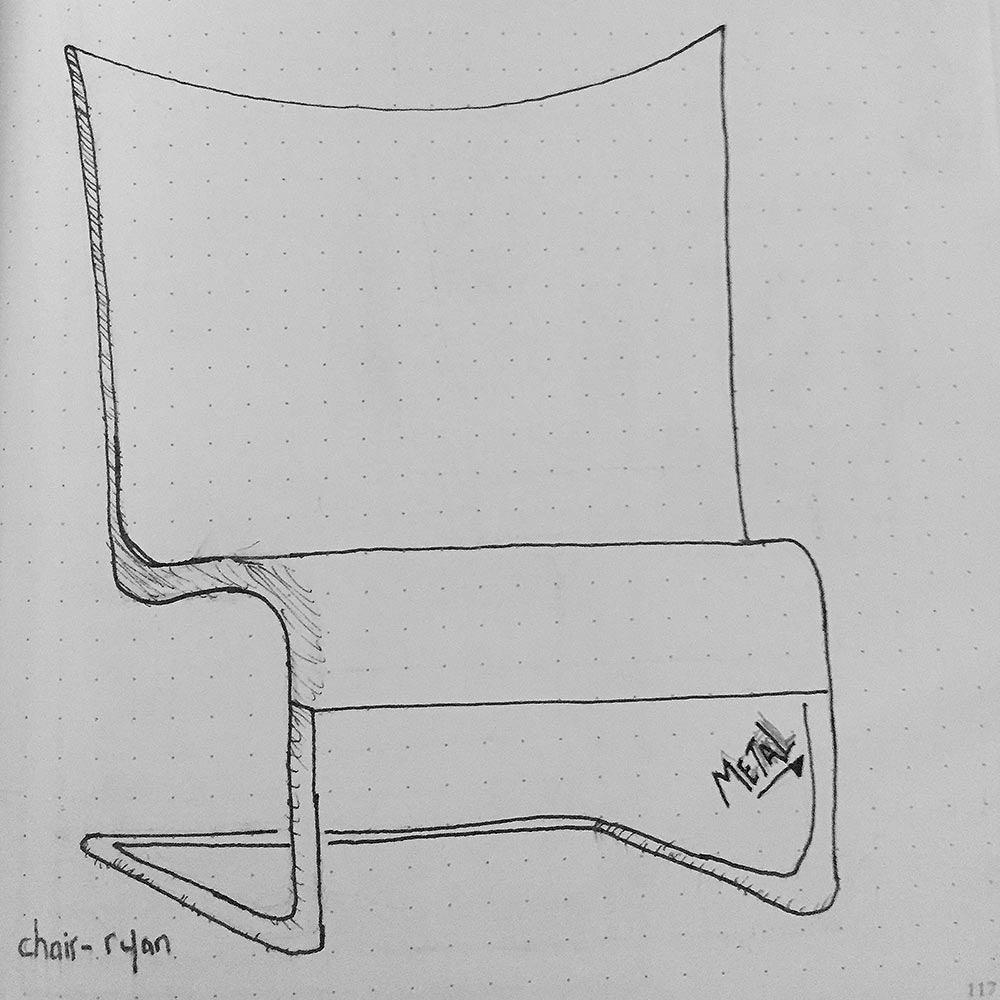 METAL
chair-ryan
117